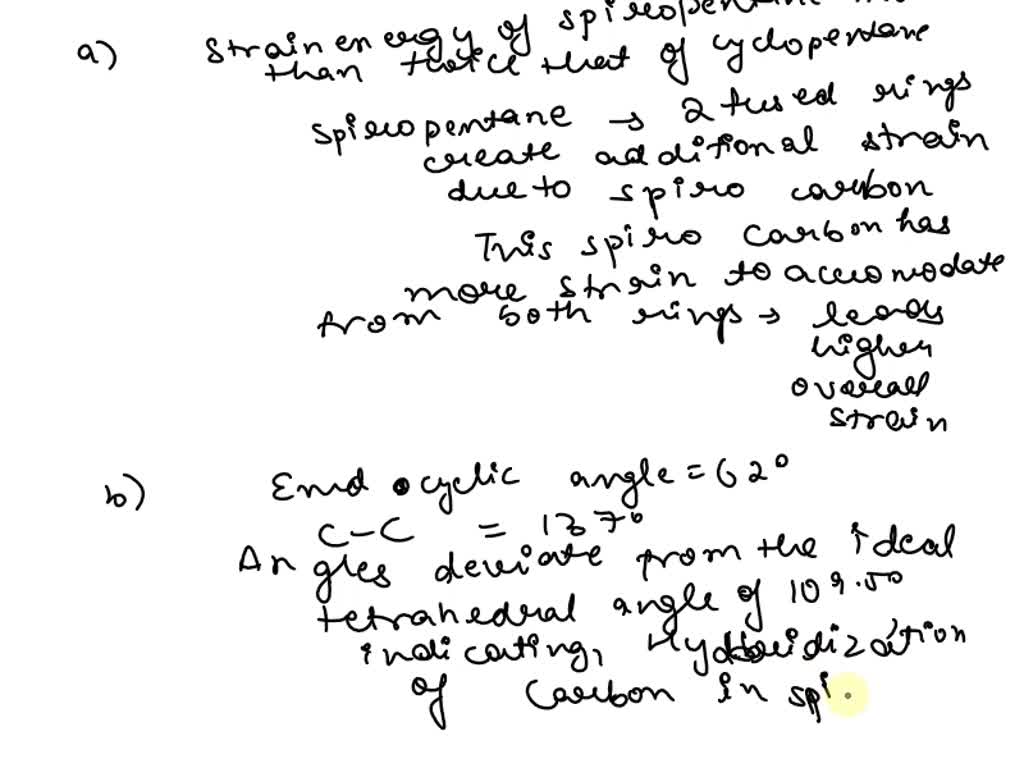 a) Strain energy of spiropentane
than twice that of cyclopentane
spiropentane → 2 fused rings
create additional strain
due to spiro carbon
This spiro carbon has
more strain to accomodate
from both rings → leads
higher
overall
strain
b) Endocyclic angle = 62°
C-C = 137°
Angles deviate from the ideal
tetrahedral angle of 109.50
indicating, Hybridization
of carbon in spi